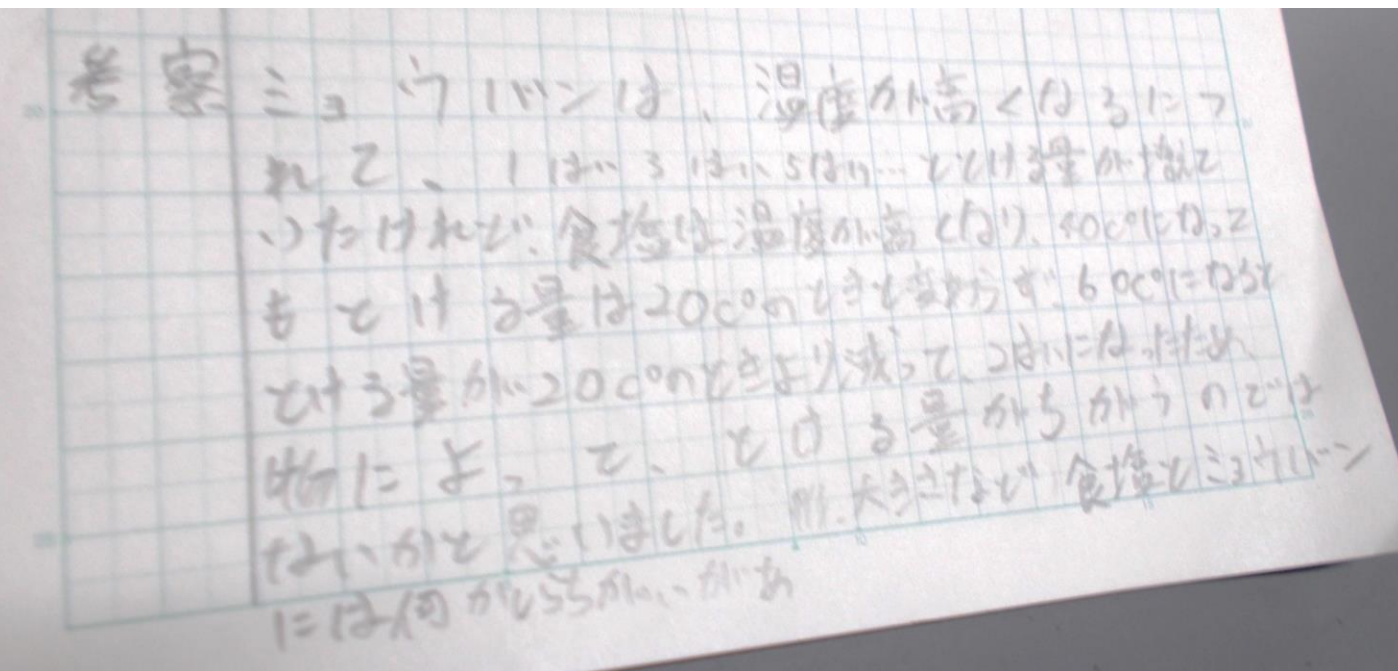 考察 ミョウバンは、温度が高くなるにつ
れて、1ぱい3ばい、5はい…ととける量が増えて
いたけれど、食塩は温度が高くなり、40c°になって
もとける量は20c°のときと変わらず、60c°になると
とける量が20c°のときより減って、2はいになったため、
物によって、とける量がちがうのでは
ないかと思いました。形、大きさなど食塩とミョウバン
には何かしらちがいがあ